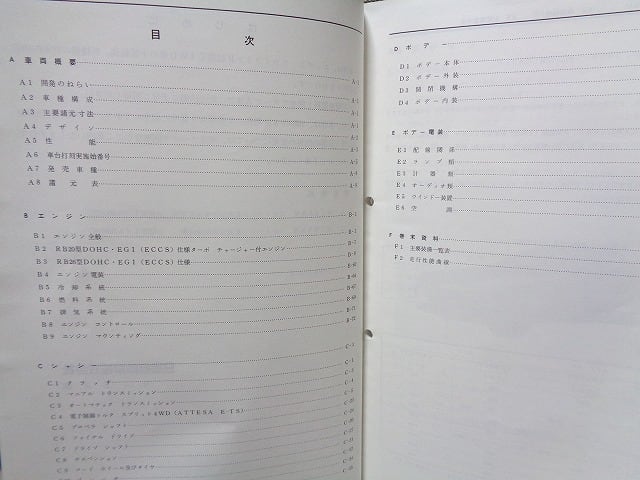 目 次
A 車両概要 A-1
A1 開発のねらい A-1
A2 車種構成 A-1
A3 主要諸元寸法 A-1
A4 デザイン
A5 性能
A6 車台打刻実施始番号
A7 発売車種
A8 諸元表
B エンジン B-1
B1 エンジン全般 B-1
B2 RB20型DOHC・EGI(ECCS)仕様ターボ チャージャー付エンジン
B3 RB26型DOHC・EGI(ECCS)仕様
B4 エンジン電装
B5 冷却系統
B6 燃料系統
B7 排気系統
B8 エンジン コントロール
B9 エンジン マウンティング
C シャシー C-1
C1 クラッチ C-1
C2 マニアル トランスミッション
C3 オートマチック トランスミッション
C4 電子制御トルク スプリット4WD(ATTESA E-TS)
C5 プロペラ シャフト
C6 ファイナル ドライブ
C7 ドライブ シャフト
C8 サスペンション
C9 ロード ホイール及びタイヤ
D ボデー
D1 ボデー本体
D2 ボデー外装
D3 開閉機構
D4 ボデー内装
E ボデー電装
E1 配線関係
E2 ランプ類
E3 計器類
E4 オーディオ類
E5 ウインドー装置
E6 空調
F 巻末資料
F1 主要装備一覧表
F2 走行性能曲線